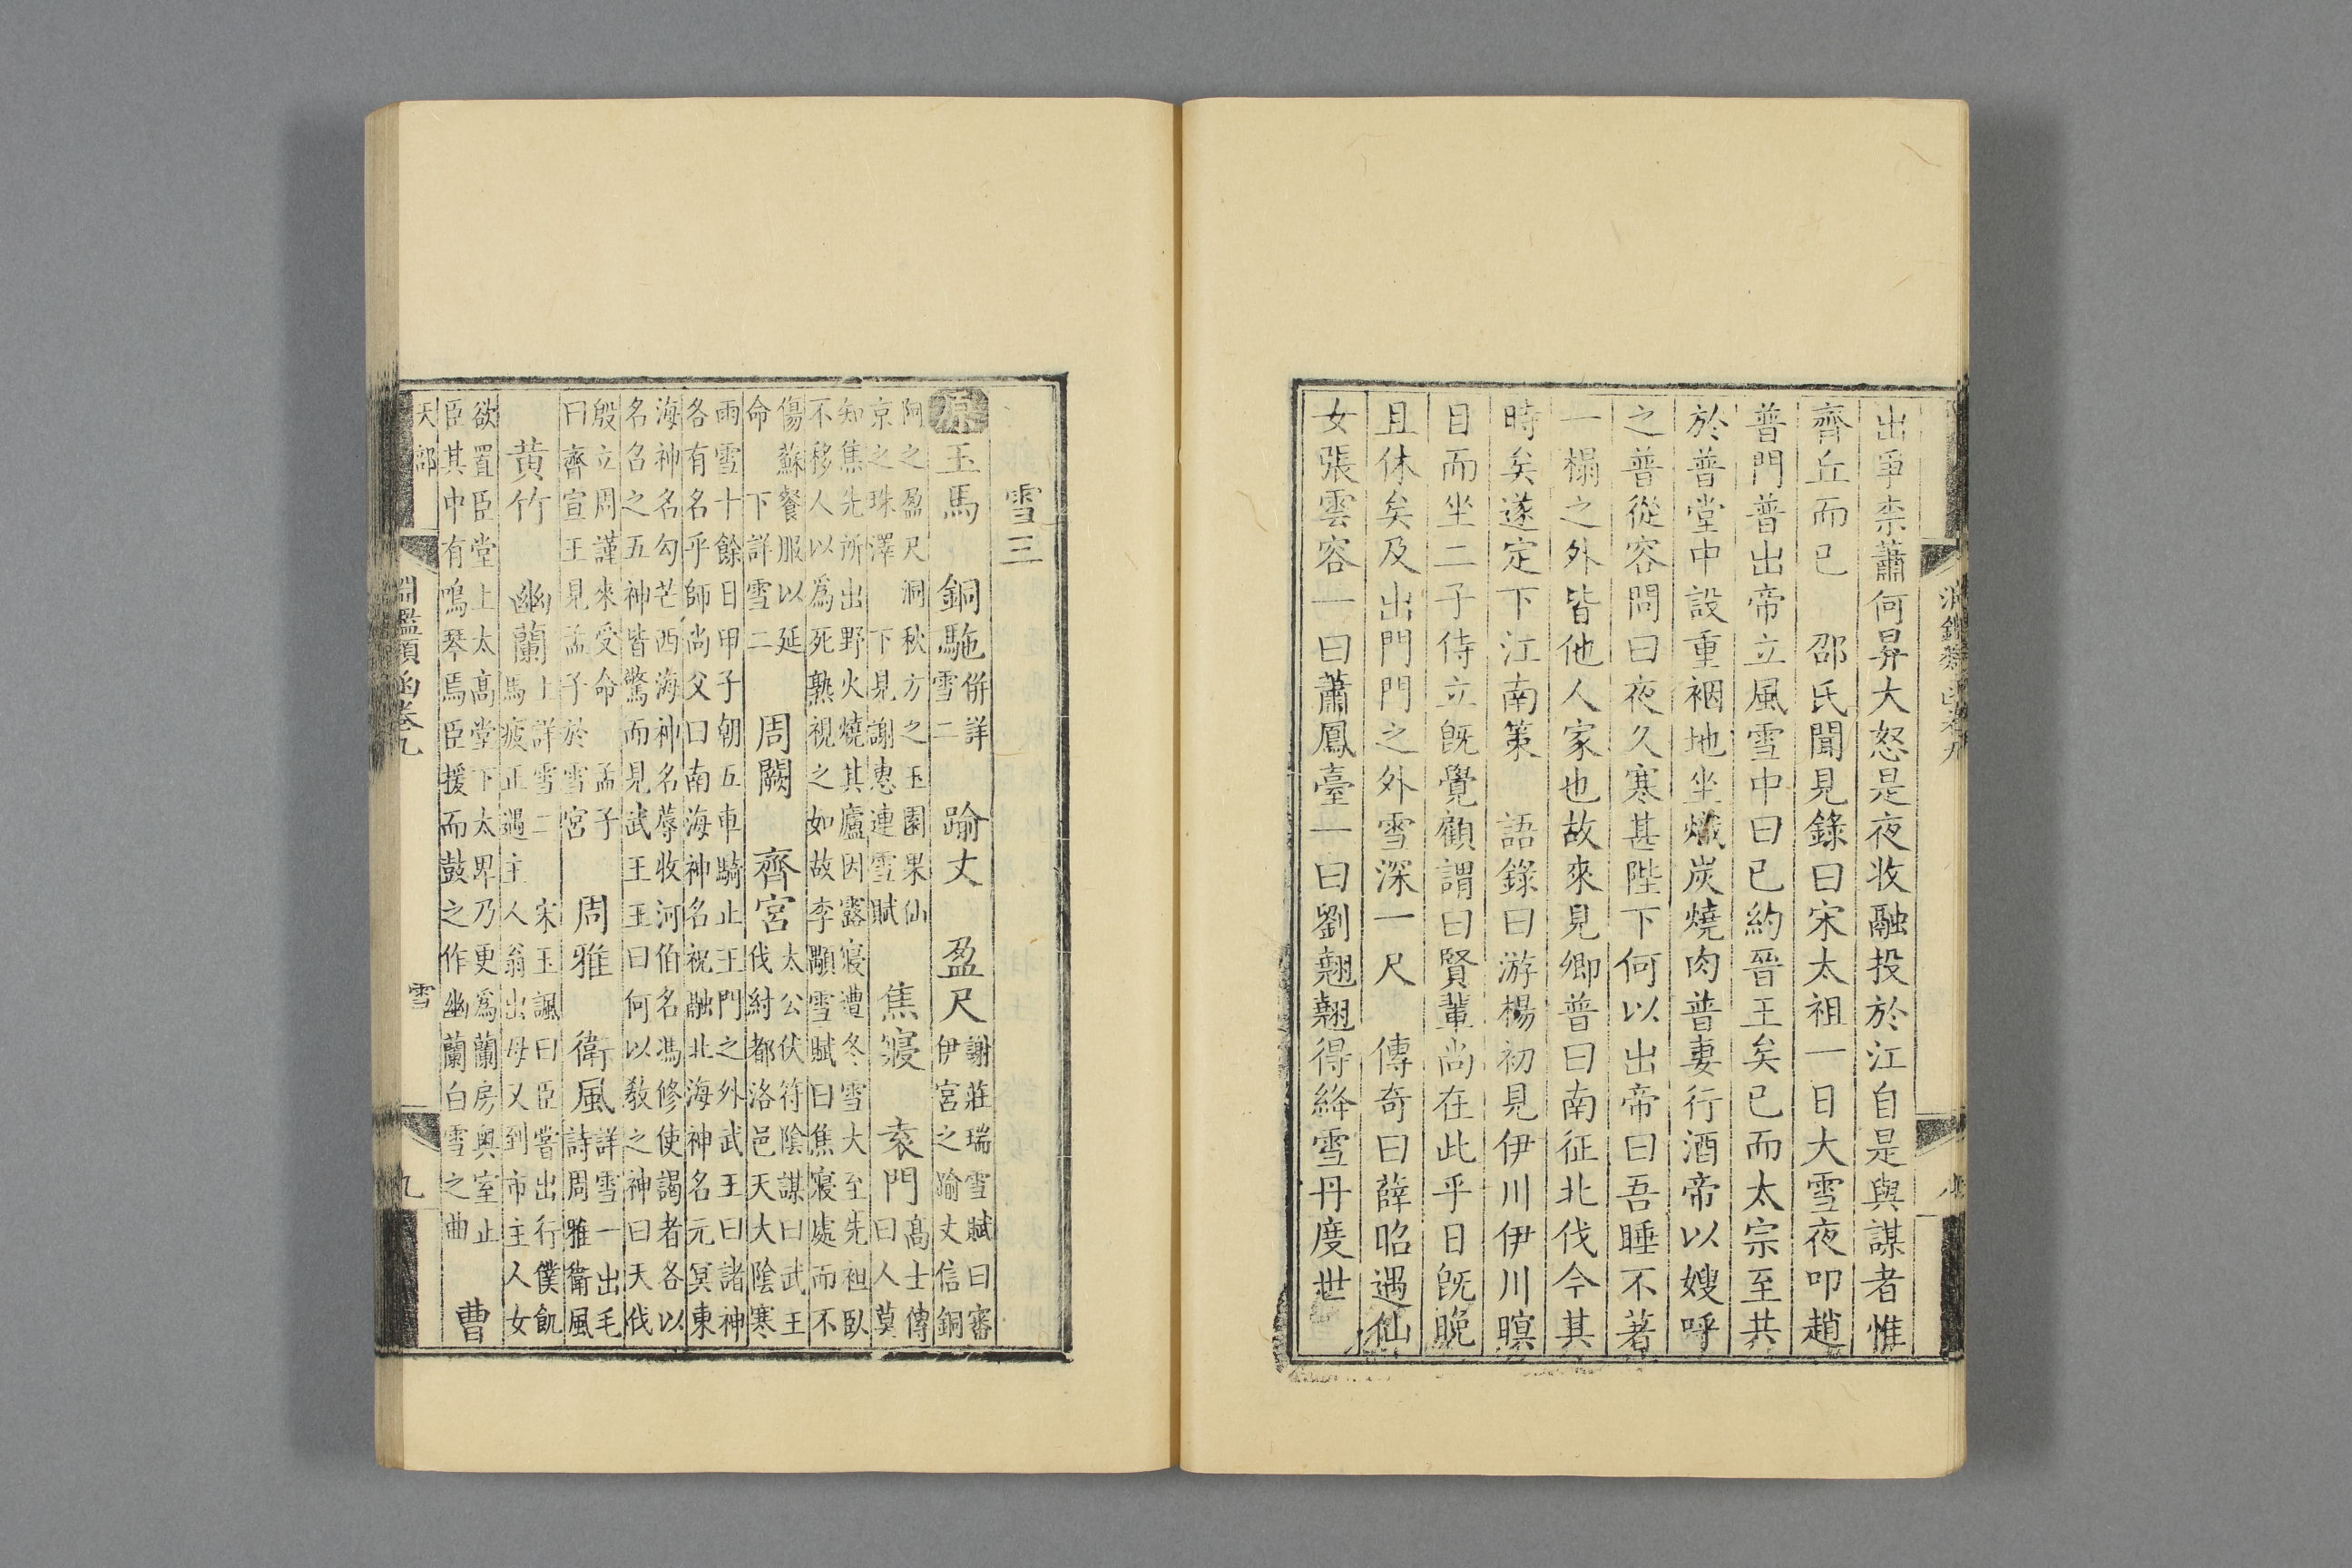 出爭柰蕭何昇大怒是夜收融投於江自是與謀者惟
齊丘而已　邵氏聞見錄曰宋太祖一日大雪夜叩趙
普門普出帝立風雪中曰已約晉王矣已而太宗至共
於普堂中設重裀地坐熾炭燒肉普妻行酒帝以嫂呼
之普從容問曰夜久寒甚陛下何以出帝曰吾睡不著
一榻之外皆他人家也故來見卿普曰南征北伐今其
時矣遂定下江南策　語錄曰游楊初見伊川伊川暝
目而坐二子侍立旣覺顧謂曰賢輩尚在此乎日旣晚
且休矣及出門門之外雪深一尺　傳奇曰薛昭遇仙
女張雲容一曰蕭鳳臺一曰劉翹翹得絳雪丹度世
雪三
原玉馬　銅駞併詳雪二　踰丈　盈尺謝莊瑞雪賦曰審伊宮之踰丈信銅
阿之盈尺洞秋方之玉園果仙京之珠澤　下見謝惠連雪賦　焦寢　袁門高士傳曰人莫
知焦先所出野火燒其廬因露寢遭冬雪大至先袒臥不移人以爲死熟視之如故李顒雪賦曰焦寢處而不
傷蘇餐服以延命　下詳雪二　周闕　齊宮太公伏符陰謀曰武王伐紂都洛邑天大陰寒
雨雪十餘日甲子朝五車騎止王門之外武王曰諸神各有名乎師尚父曰南海神名祝融北海神名元冥東
海神名勾芒西海神名蓐收河伯名馮修使謁者各以名召之五神皆驚而見武王王曰何以敎之神曰天伐
殷立周謹來受命　孟子曰齊宣王見孟子於雪宮　周雅　衛風詳雪一出毛詩周雅衛風
黃竹　幽蘭上詳雪二　宋玉諷曰臣嘗出行僕飢馬疲正遇主人翁出母又到市主人女
欲置臣堂上太高堂下太卑乃更爲蘭房奧室止臣其中有鳴琴焉臣援而鼓之作幽蘭白雪之曲　曹
天部
淵鑑類函卷九　雪　九